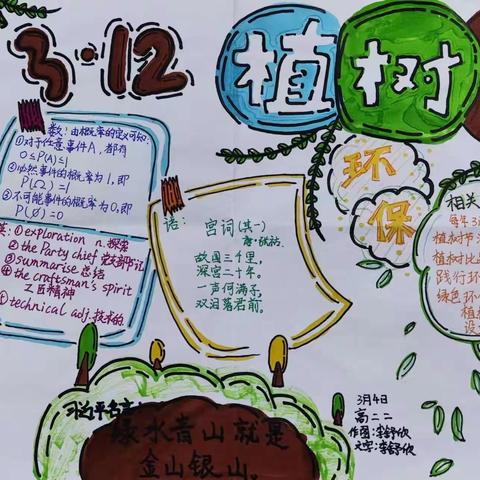 3·12
植树
数:由概率的定义可知:
①对于任意事件A,都有
0≤P(A)≤1
②必然事件的概率为1,即
P(Ω)=1
③不可能事件的概率为0,即
P(∅)=0
英:①exploration n.探索
②the Party chief 党支部书记
③summarise 总结
④the craftsman's spirit
工匠精神
⑤technical adj.技术的
语:
宫词(其一)
唐·张祜
故国三千里,
深宫二十年。
一声何满子,
双泪落君前。
环
保
相关
每年3
植树节
植树比
践行环
绿色环
植
设
习近平名言:
绿水青山就是
金山银山。
3月4日
高二二
作图:李舒欣
文字:李舒欣